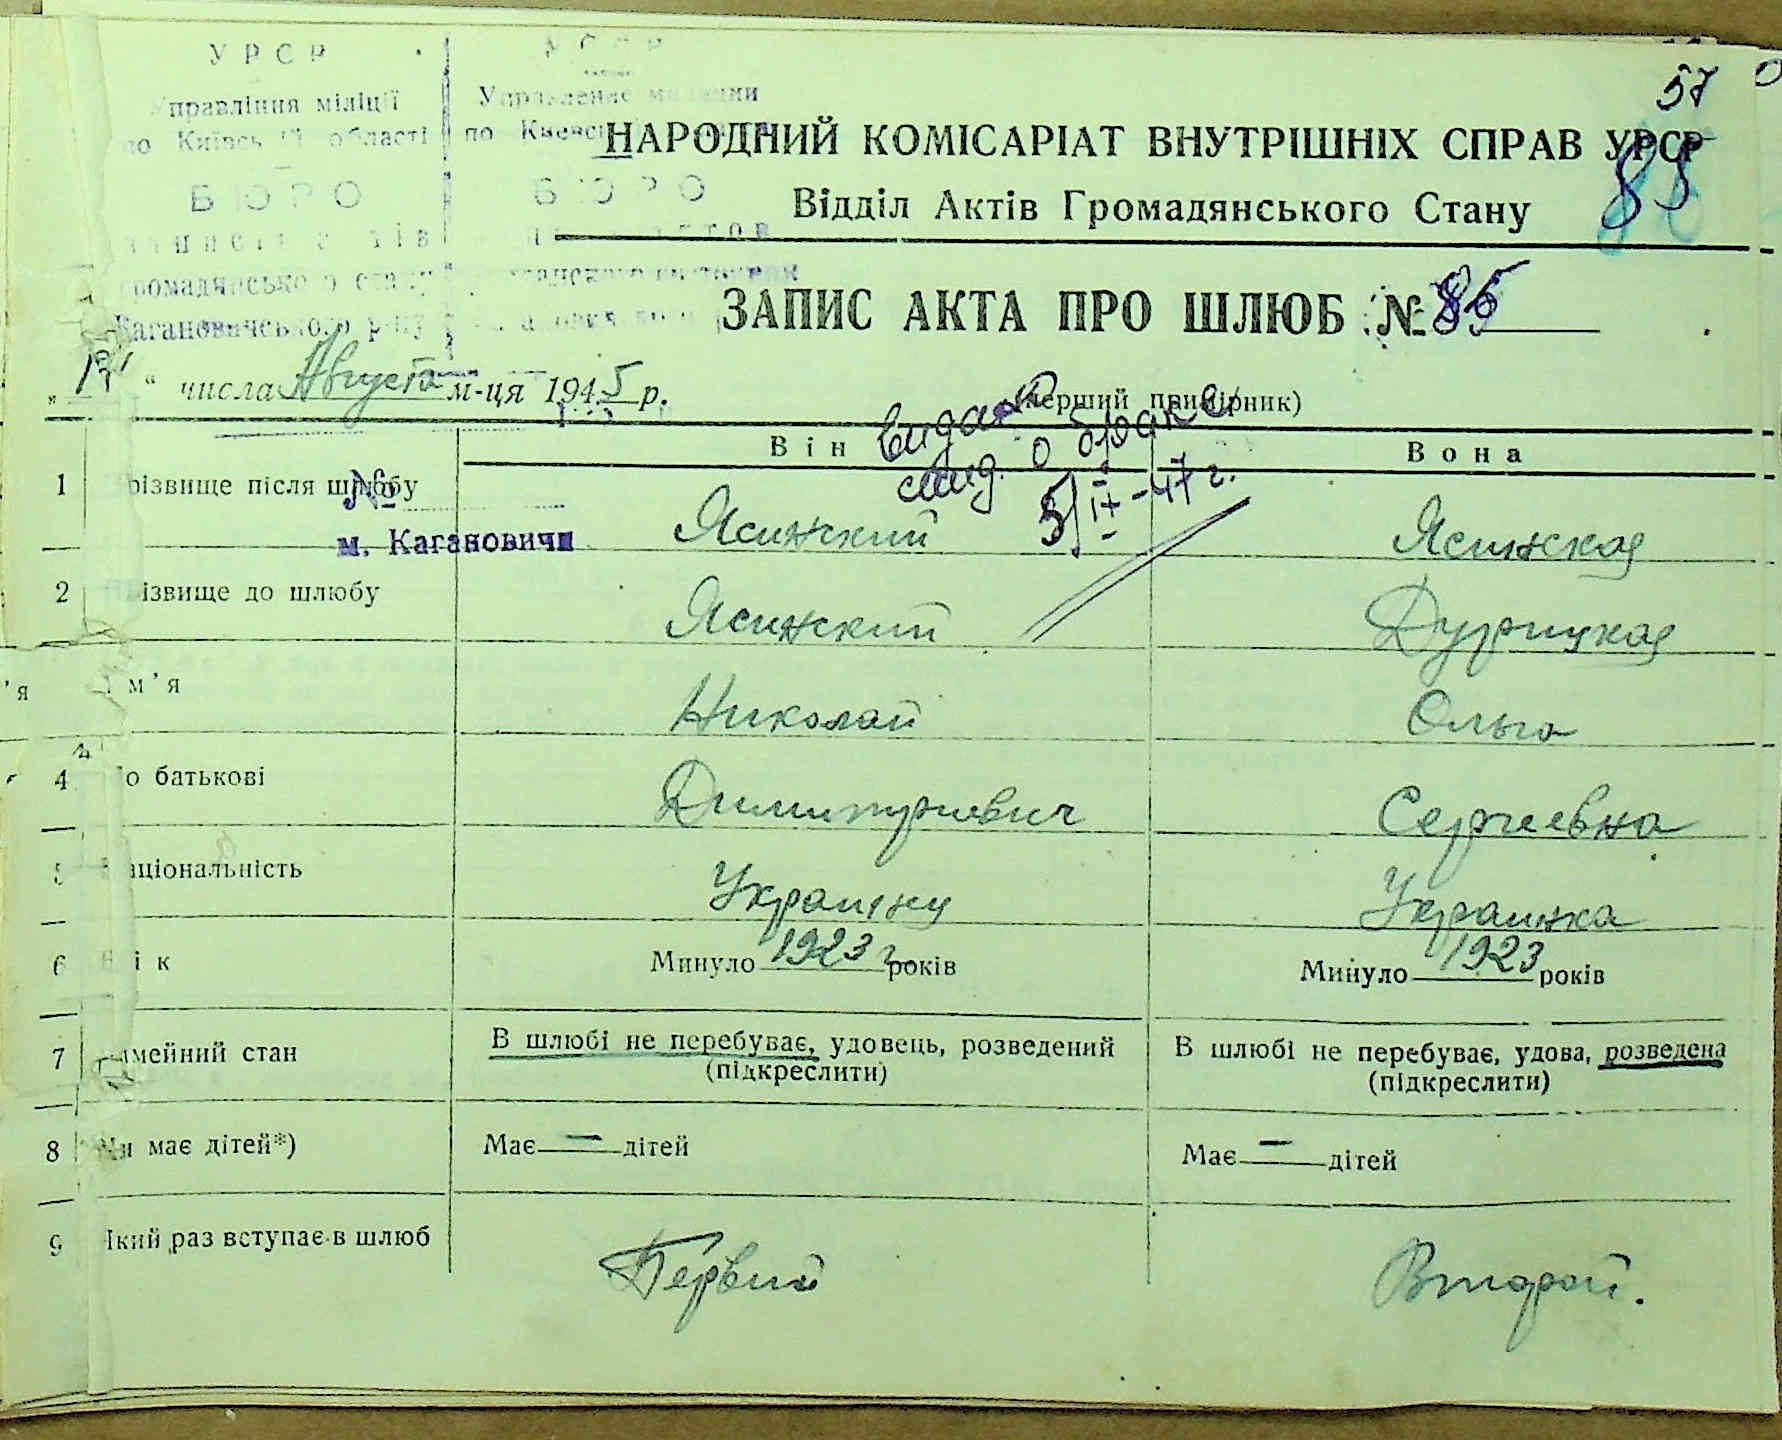 УРСР
Управління міліції
по Київській області
БЮРО
громадянського стану
Кагановичського р-ну
УССР
Управление милиции
по Киевской
БЮРО
актов
гражданского состояния
57
НАРОДНИЙ КОМІСАРІАТ ВНУТРІШНІХ СПРАВ УРСР
Відділ Актів Громадянського Стану
85
ЗАПИС АКТА ПРО ШЛЮБ № 85
" числа Августа м-ця 1945 р.
(перший примірник)
Він
Вона
свид. о браке
5/IX-47 г.
№
м. Кагановичи
1 Прізвище після шлюбу Ясинский Ясинская
2 Прізвище до шлюбу Ясинский Дурицкая
Ім'я Николай Ольга
4 По батькові Димитриевич Сергеевна
5 Національність Украинец Украинка
6 Вік Минуло 1923 г. років Минуло 1923 років
7 Сімейний стан В шлюбі не перебуває, удовець, розведений В шлюбі не перебуває, удова, розведена
(підкреслити) (підкреслити)
8 Чи має дітей*) Має — дітей Має — дітей
9 Який раз вступає в шлюб Первий Второй.